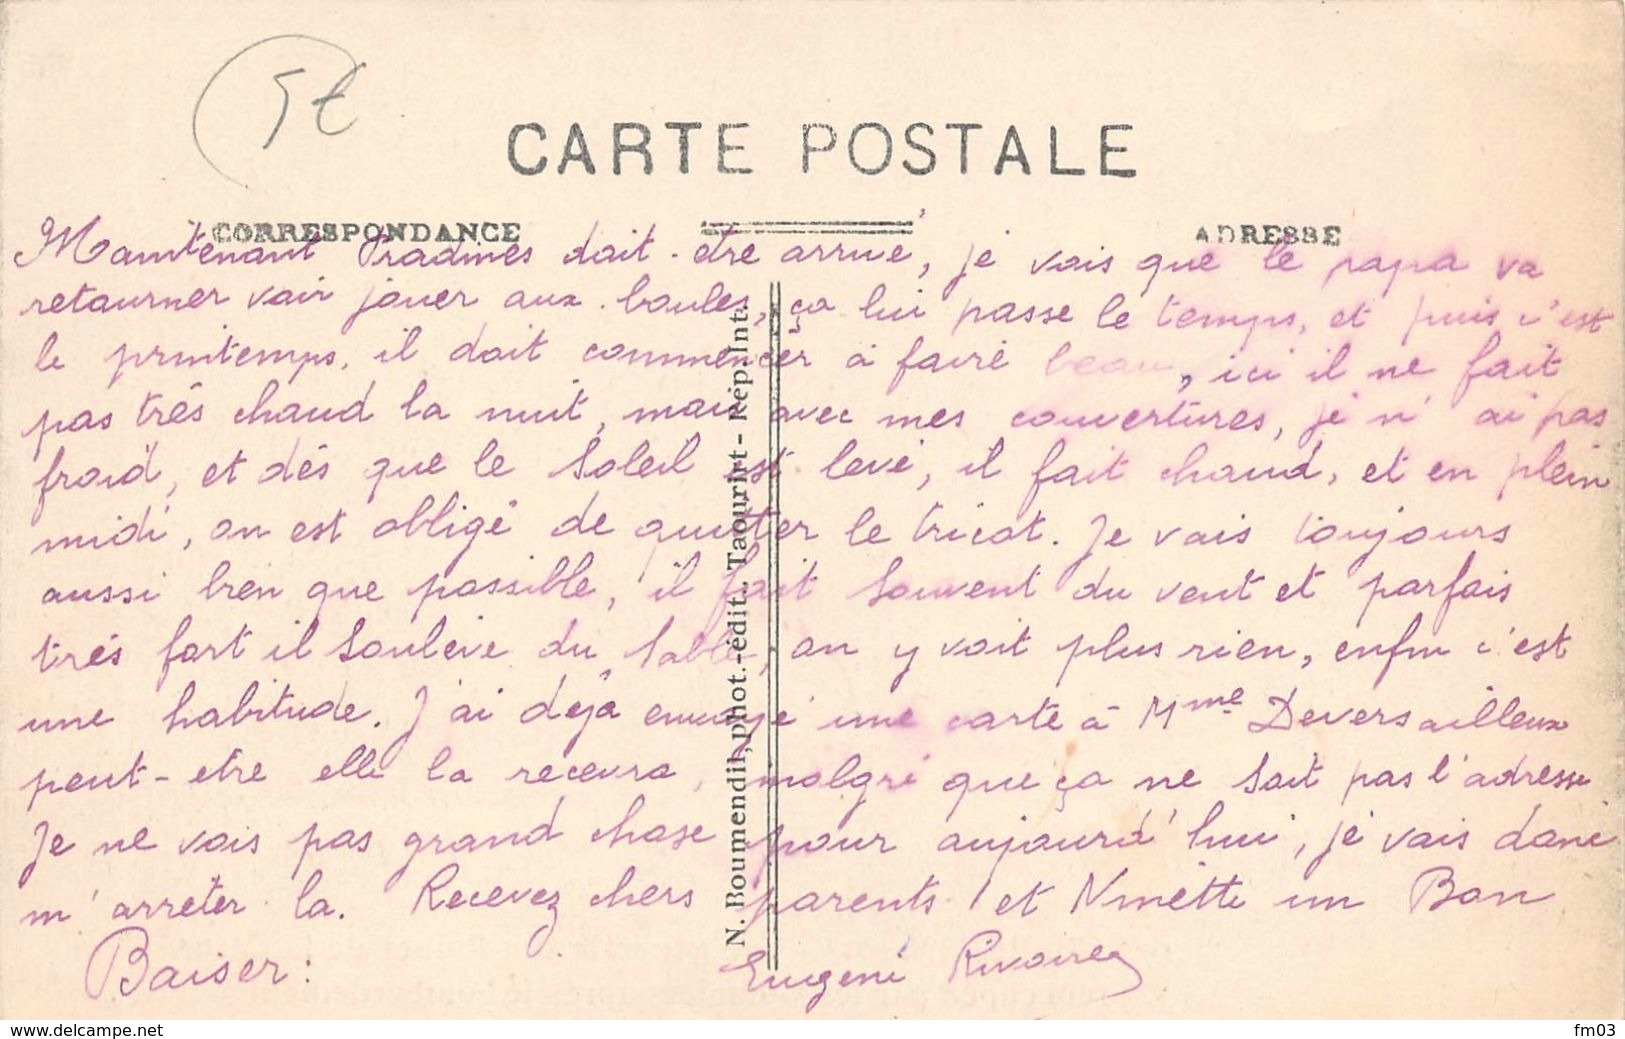 5€
CARTE POSTALE
CORRESPONDANCE
ADRESSE
Maintenant Pradines doit-etre arrivé, je vois que le papa va
retourner voir jouer aux boules, ça lui passe le temps, et puis c'est
le printemps, il doit commencer à faire beau, ici il ne fait
pas trés chaud la nuit, mais avec mes couvertures, je n'ai pas
froid, et dés que le soleil est levé, il fait chaud, et en plein
midi, on est obligé de quitter le tricot. Je vais toujours
aussi bien que possible, il fait souvent du vent et parfois
trés fort il souleve du sable, on y voit plus rien, enfin c'est
une habitude. J'ai déja envoyé une carte à Mme Deversailleux
peut-etre elle la recevra, malgré que ça ne soit pas l'adresse
Je ne vois pas grand chose pour aujourd'hui, je vais donc
m'arreter la. Recevez chers parents et Ninette un Bon
Baiser:
Eugene Rivoire
N. Boumendil, phot.-édit., Taourirt - Rép. Int.
www.delcampe.net
fm03